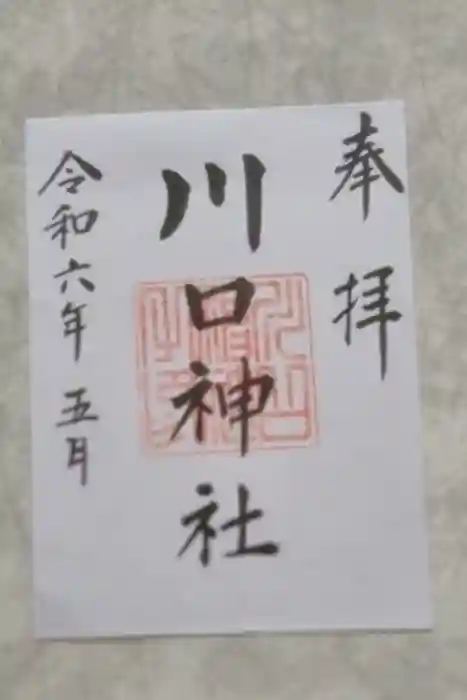 奉拝
川口神社
令和六年五月